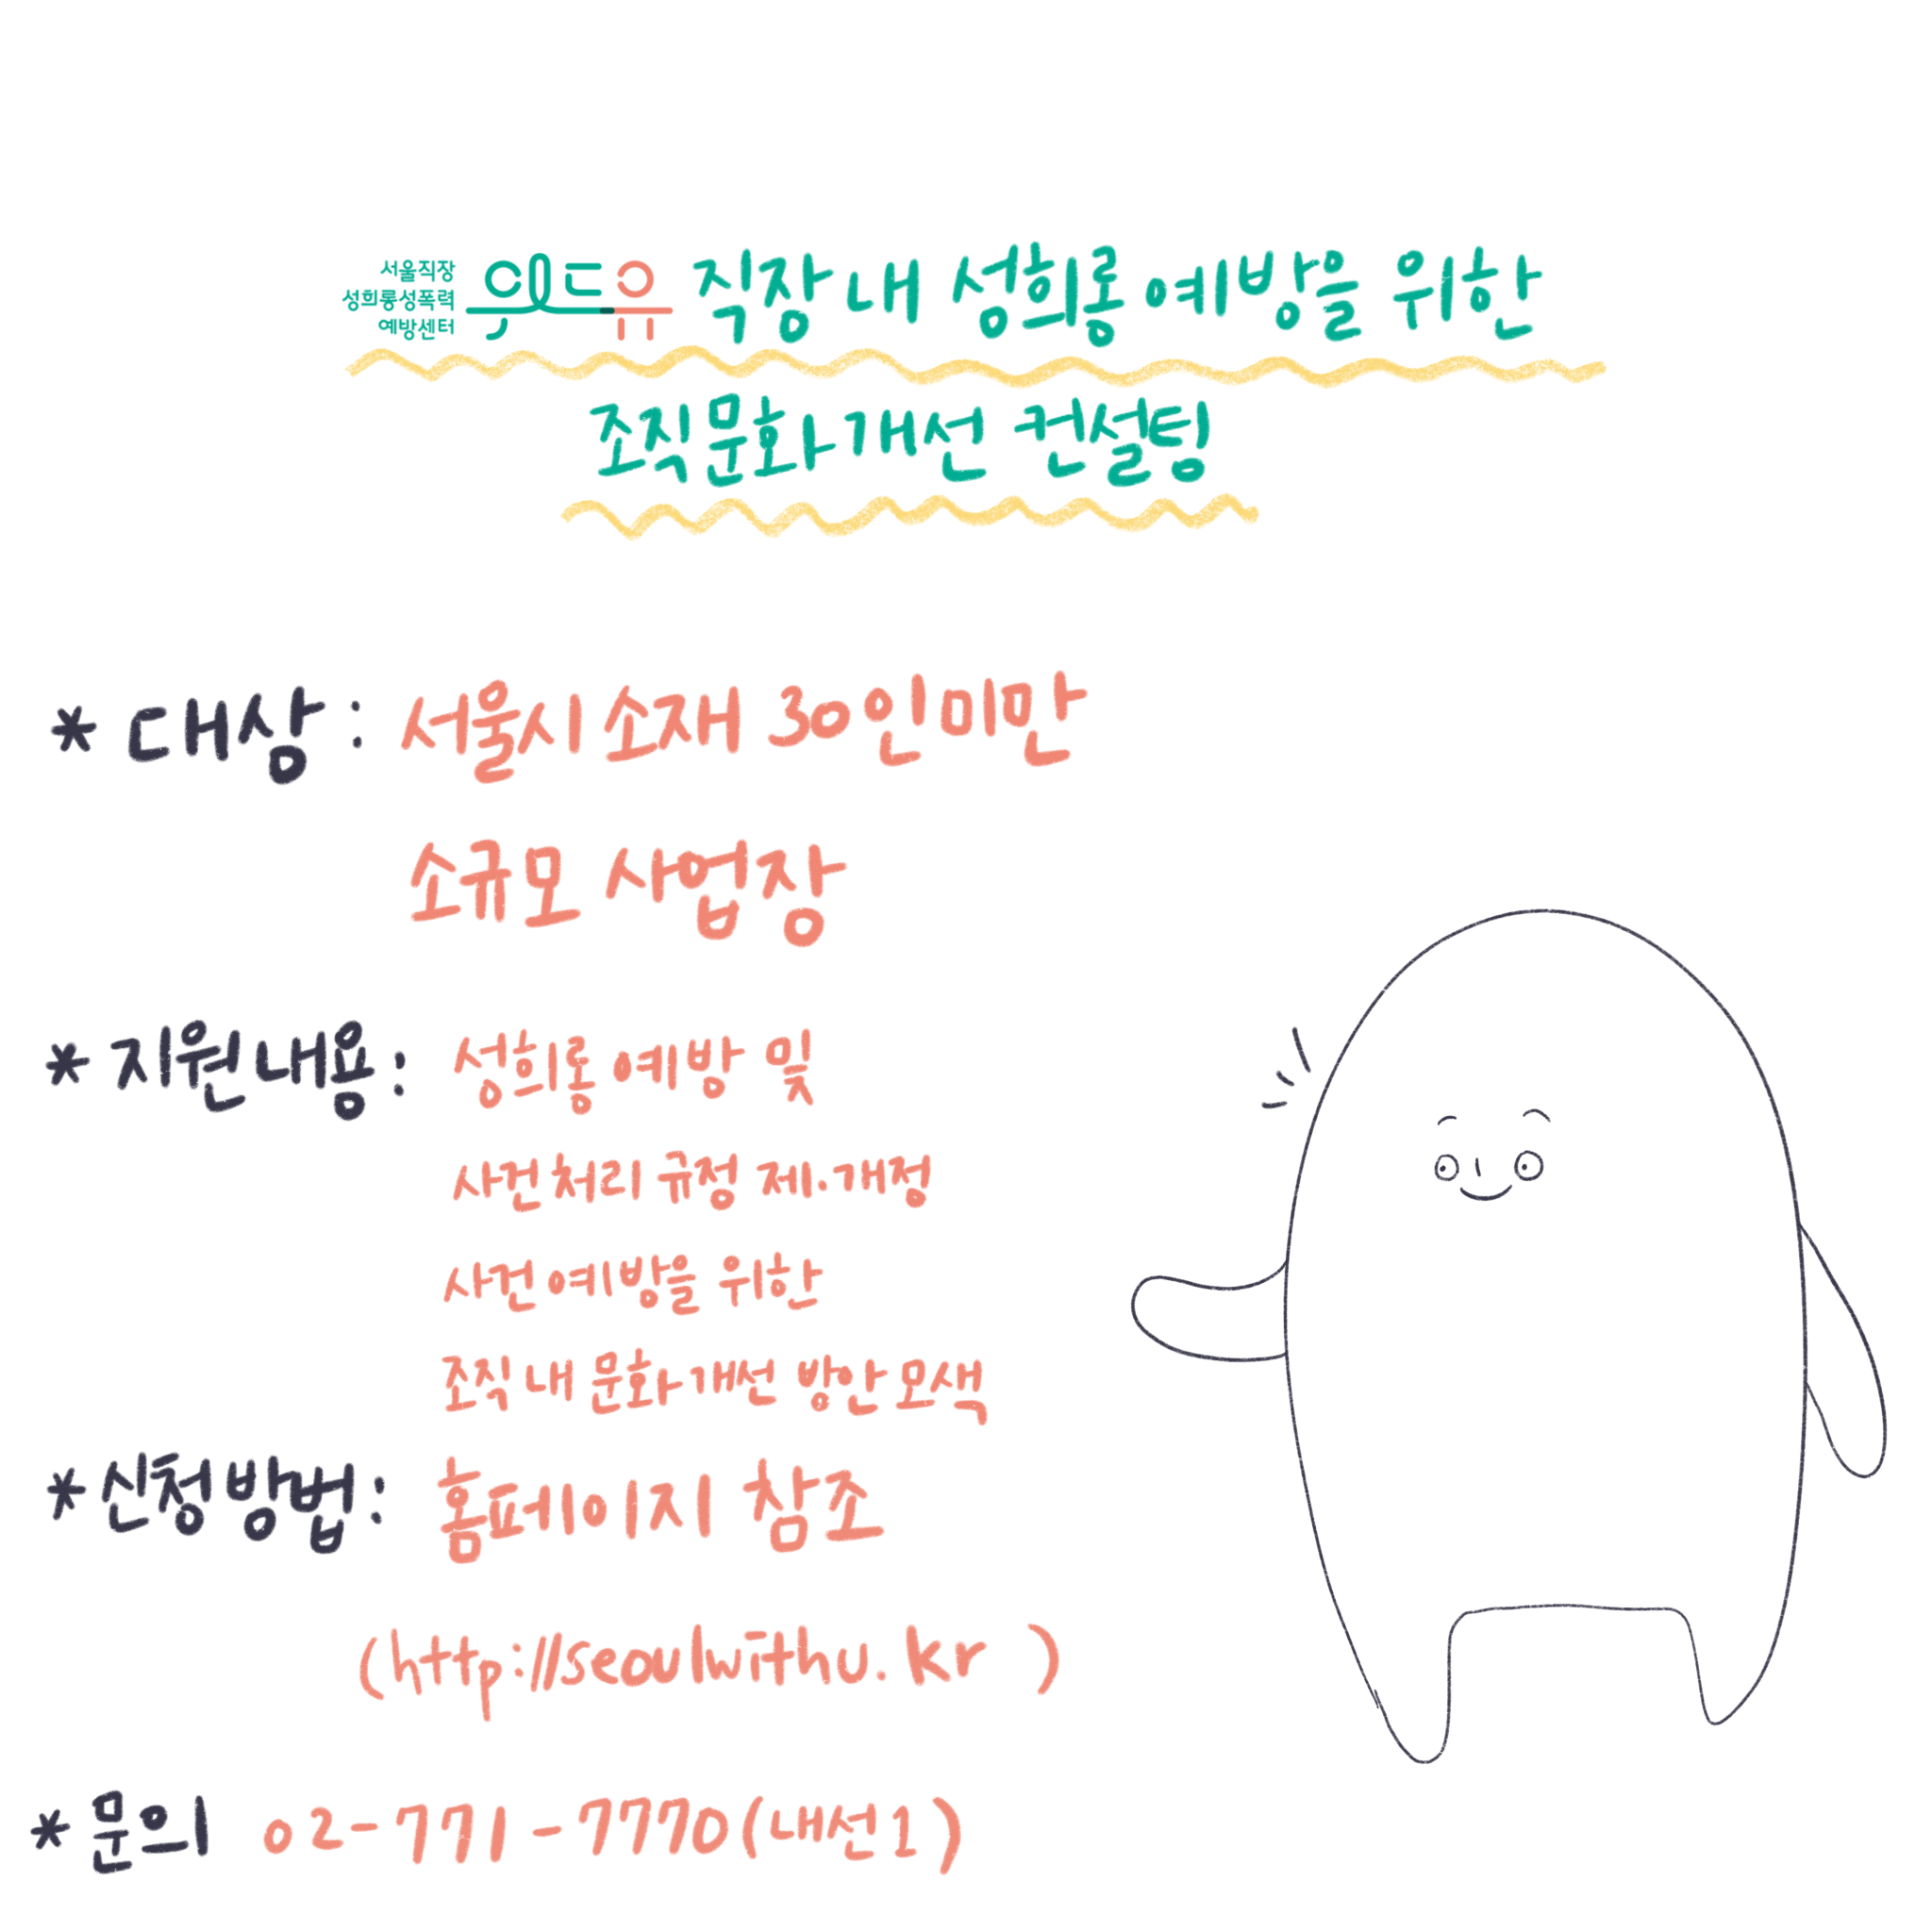 서울직장
성희롱성폭력
예방센터
위드유 직장 내 성희롱 예방을 위한
조직문화 개선 컨설팅
* 대상 : 서울시 소재 30인 미만
소규모 사업장
* 지원내용 : 성희롱 예방 및
사건처리 규정 제·개정
사건 예방을 위한
조직 내 문화 개선 방안 모색
* 신청방법 : 홈페이지 참조
(http://seoulwithu.kr )
* 문의 02-771-7770(내선1)